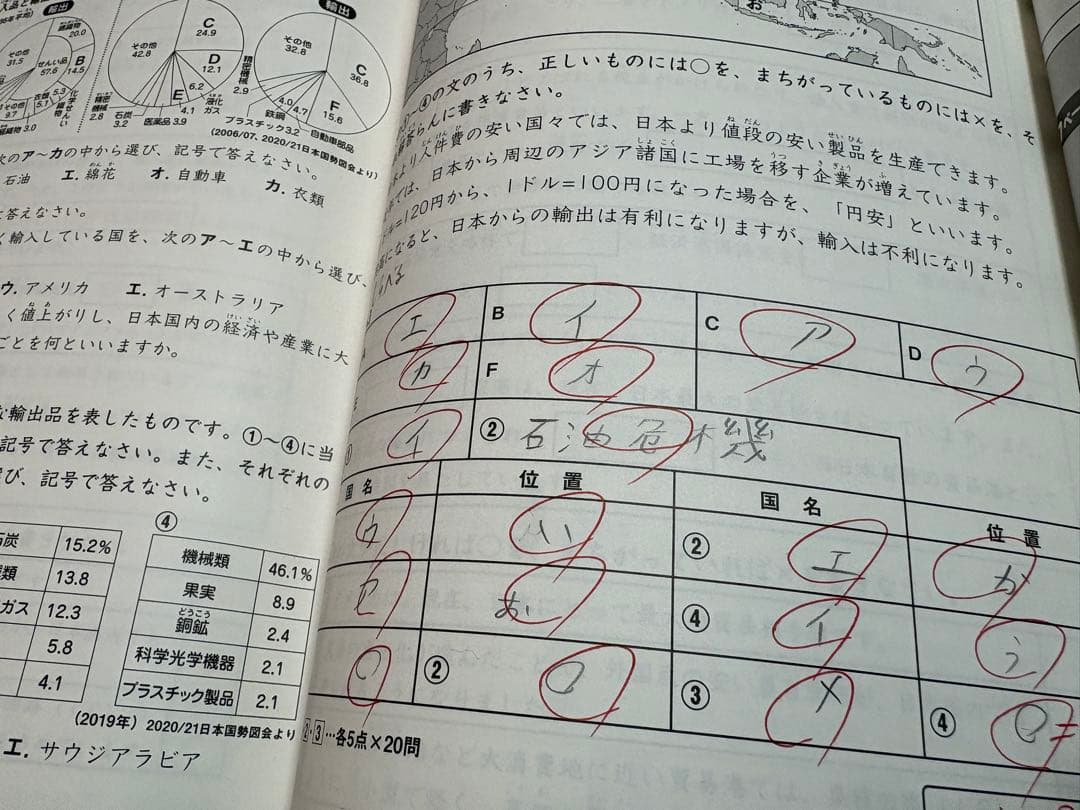 輸出
輸出
20.0
その他
31.5
せんい品
57.6
B
14.5
衣類
5.1
5.3
化学せんい
その他
9.7
織物
3.0
精密機械
2.8
C
24.9
その他
42.8
D
12.1
6.2
液化ガス
4.1
E
石炭
3.2
医薬品3.9
その他
32.8
C
36.8
F
15.6
自動車部品
精密機械
2.9
4.0
4.7
鉄鋼
プラスチック3.2
(2006/07, 2020/21日本国勢図会より)
次のア〜カの中から選び、記号で答えなさい。
石油 エ. 綿花 オ. 自動車 カ. 衣類
答えなさい。
く輸入している国を、次のア〜エの中から選び、
ウ. アメリカ エ. オーストラリア
く値上がりし、日本国内の経済や産業に大
ことを何といいますか。
な輸出品を表したものです。①〜④に当
記号で答えなさい。また、それぞれの
び、記号で答えなさい。
石炭 15.2%
類 13.8
ガス 12.3
5.8
4.1
④
機械類 46.1%
果実 8.9
銅鉱 2.4
科学光学機器 2.1
プラスチック製品 2.1
(2019年) 2020/21日本国勢図会より
エ. サウジアラビア
お
〜④の文のうち、正しいものには○を、まちがっているものには×を、そ
解答らんに書きなさい。
より人件費の安い国々では、日本より値段の安い製品を生産できます。
では、日本から周辺のアジア諸国に工場を移す企業が増えています。
ル=120円から、1ドル=100円になった場合を、「円安」といいます。
になると、日本からの輸出は有利になりますが、輸入は不利になります。
エ B イ C ア D う
カ F オ
イ ② 石油危機
国名 位置 国名 位置
ウ い ② エ か
お ④ イ う
○ ② ○ ③ × ④ ○
2・3…各5点×20問